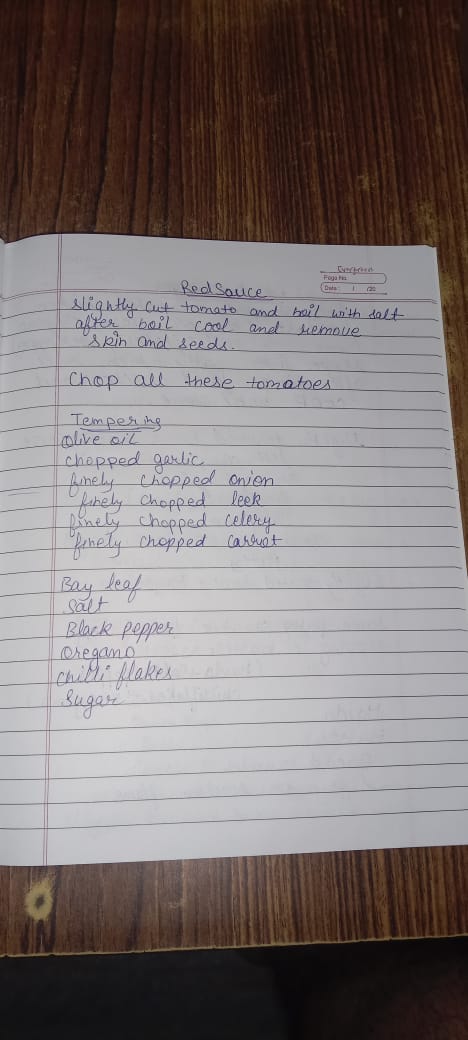 Evergreen
Page No.
Date: / /20
Red Sauce
slightly cut tomato and boil with salt
after boil cool and remove
skin and seeds.
Chop all these tomatoes
Tempering
Olive oil
chopped garlic
finely chopped onion
finely chopped leek
finely chopped celery
finely chopped carrot
Bay leaf
Salt
Black pepper
Oregano
chilli flakes
Sugar